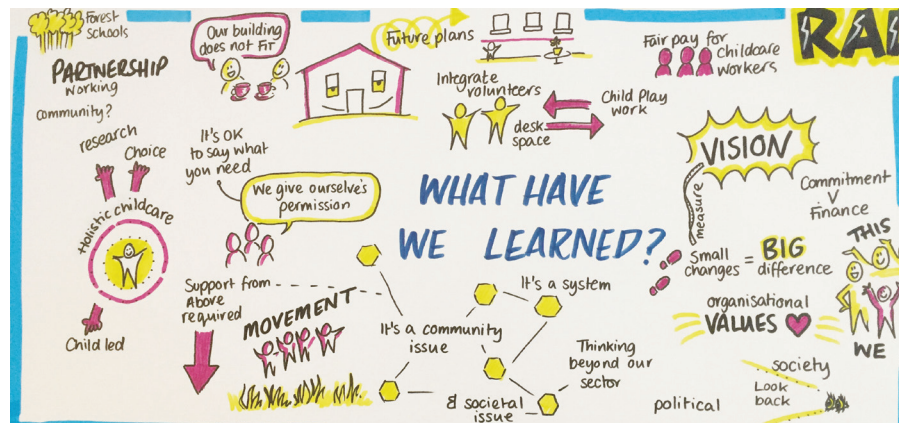 Forest
schools
PARTNERSHIP
working
community?
research
Choice
Holistic childcare
Child led
Our building
does not FiT
It's OK
to say what
you need
We give ourselve's
permission
Support from
Above
required
MOVEMENT
Future plans
Integrate
volunteers
desk
space
Child Play
work
Fair pay for
childcare
workers
WHAT HAVE
WE LEARNED?
It's a system
It's a community
issue
& societal
issue
Thinking
beyond our
sector
RA
VISION
measure
Commitment
V
Finance
Small
changes = BIG
difference
organisational
VALUES
THIS
WE
society
Look
back
political